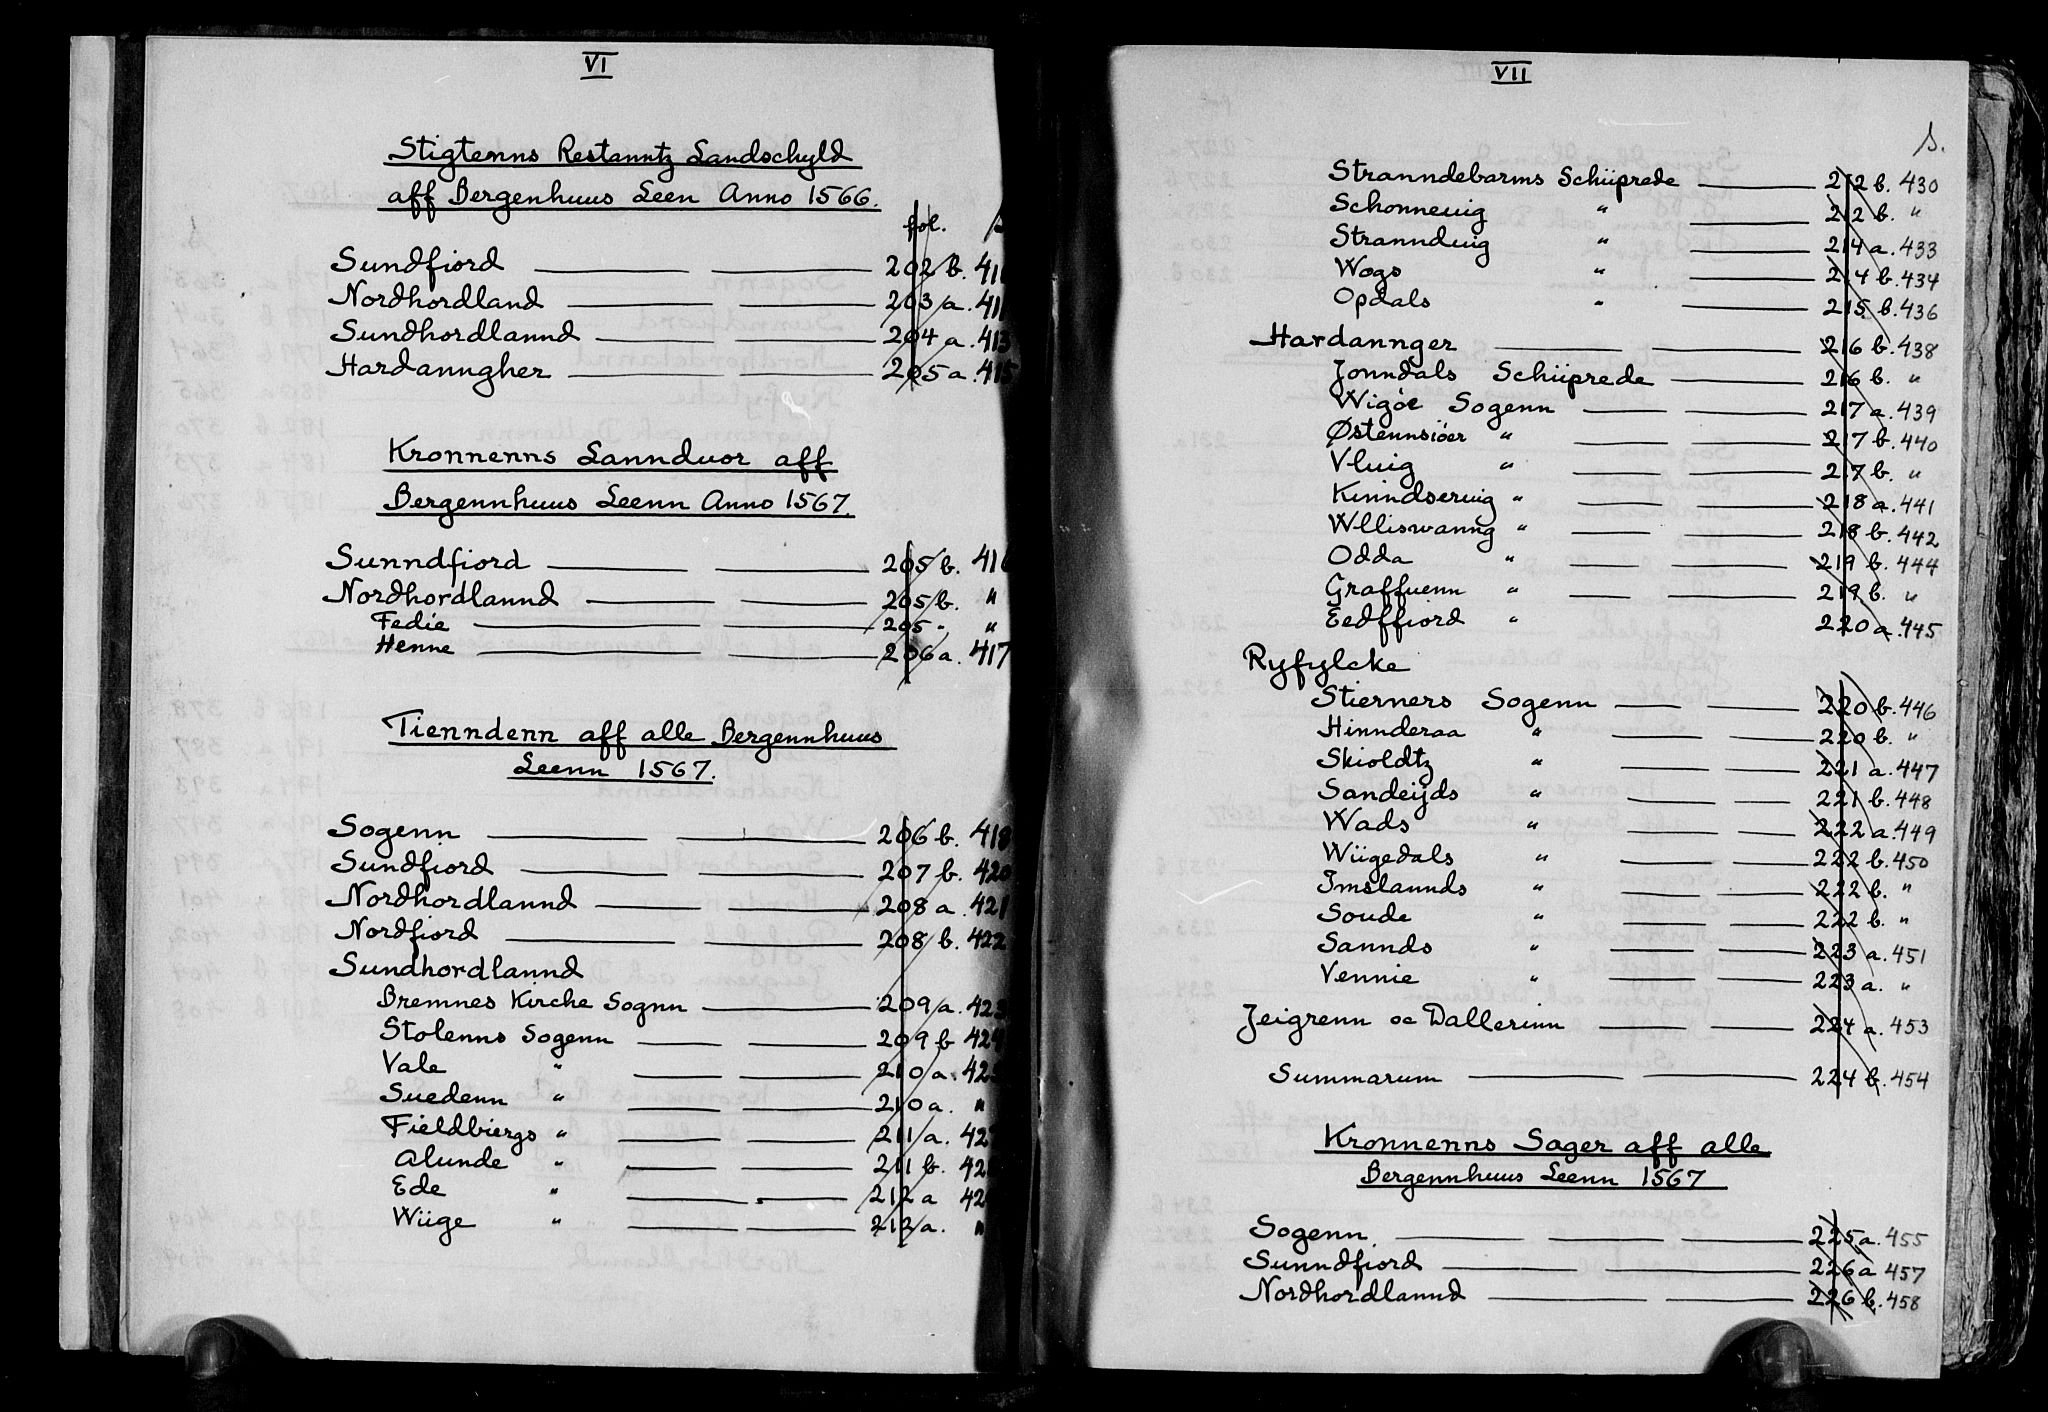 VI
Stigtenns Restanntz Landschyld
aff Bergenhuus Leen Anno 1566.
fol.
Sundfiord 202 b. 41
Nordhordland 203 a. 411
Sundhordlannd 204 a. 413
Hardanngher 205 a. 415
Kronnenns Lannduor aff
Bergennhuus Leenn Anno 1567.
Sunndfiord 205 b. 416
Nordhordlannd 205 b. "
Fedie 205 " "
Henne 206 a. 417
Tienndenn aff alle Bergennhuus
Leenn 1567.
Sogenn 206 b. 418
Sundfiord 207 b. 420
Nordhordlannd 208 a. 421
Nordfiord 208 b. 422
Sundhordlannd
Bremnes Kirche Sognn 209 a. 423
Stolenns Sogenn 209 b 424
Vale " 210 a. 42
Suedenn " 210 a. "
Fieldbiergs " 211 a. 427
Alunde " 211 b. 42
Ede " 212 a 42
Wiige " 212 a. "
VII
S.
Stranndebarms Schiiprede 212 b. 430
Schonneuig " 212 b. "
Strannduig " 214 a. 433
Wogs " 214 b. 434
Opdals " 215 b. 436
Hardannger 216 b. 438
Jonndals Schiiprede 216 b. "
Wigøe Sogenn 217 a. 439
Østennsiøer " 217 b. 440
Vluig " 217 b. "
Kinndseruig " 218 a. 441
Wlliswanng " 218 b. 442
Odda " 219 b. 444
Graffuenn " 219 b. "
Eedffiord " 220 a. 445
Ryfylcke
Stierners Sogenn 220 b. 446
Hinnderaa " 220 b. "
Skioldtz " 221 a. 447
Sandeijds " 221 b. 448
Wads " 222 a. 449
Wiigedals " 222 b. 450
Imslannds " 222 b. "
Soude " 222 b. "
Sannds " 223 a. 451
Vennie " 223 a. "
Jeigrenn oc Dallerinn 224 a. 453
Summarum 224 b. 454
Kronnenns Sager aff alle
Bergennhuus Leenn 1567
Sogenn. 225 a. 455
Sunndfiord 226 a 457
Nordhordlannd 226 b. 458